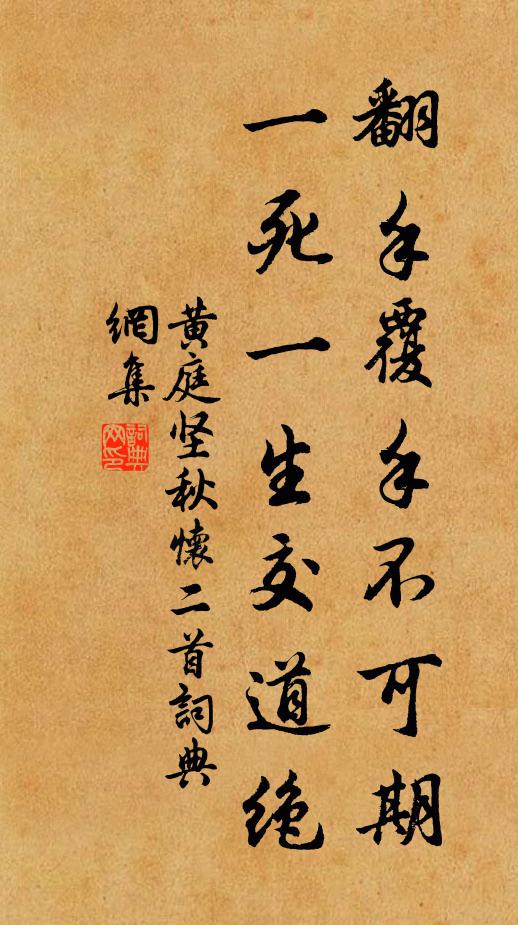 翻手覆手不可期
一死一生交道绝
黄庭坚秋懷二首詞典
網集
詞典网印